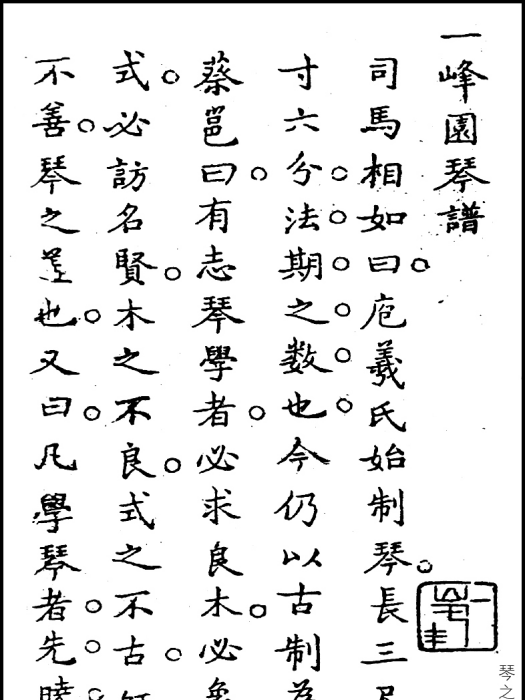 一峰園琴譜
司馬相如曰庖羲氏始制琴長三尺
寸六分法期之数也今仍以古制為
蔡邕曰有志琴學者必求良木必
式必訪名賢木之不良式之不古
不善琴之也又曰凡學琴者先曉
琴之